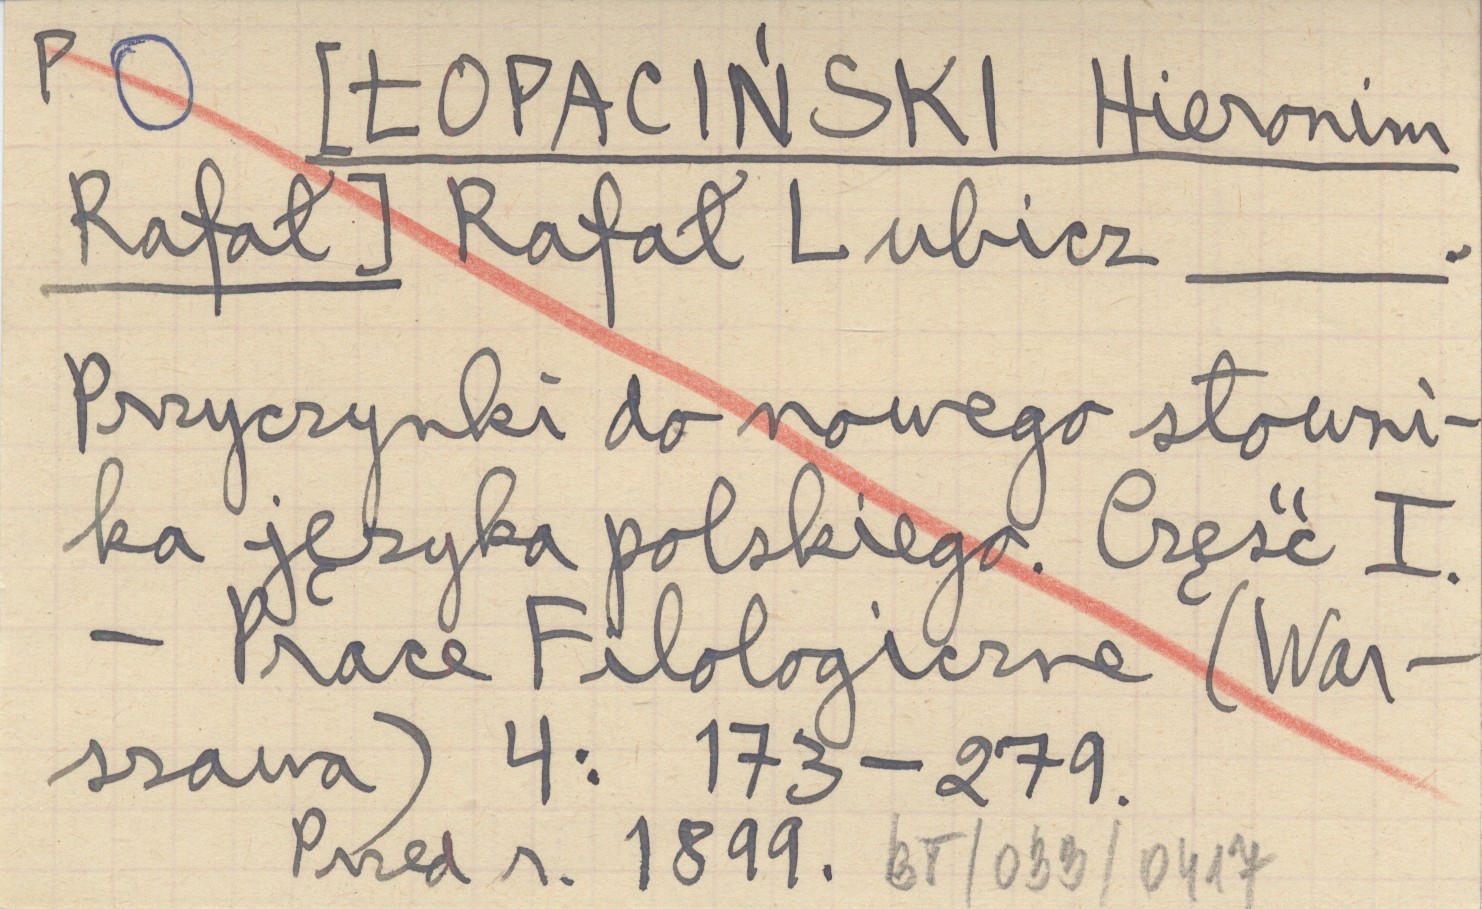 P O [ŁOPACIŃSKI Hieronim
Rafał] Rafał Lubicz ____.
Przyczynki do nowego słowni-
ka języka polskiego. Część I.
– Prace Filologiczne (War-
szawa) 4: 173–279.
Przed r. 1899. BT/033/0417